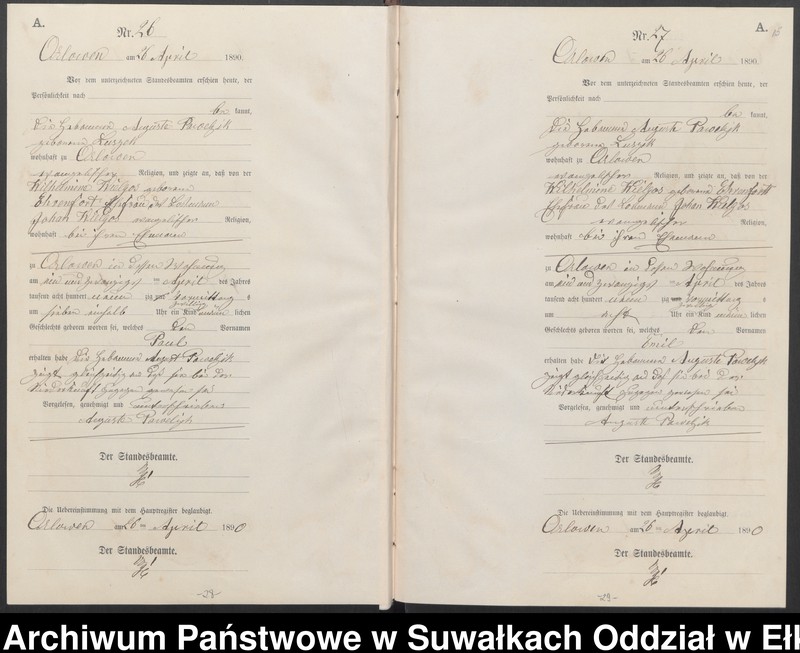 A.
Nr. 26
Orlowen am 26 April 1890.
Vor dem unterzeichneten Standesbeamten erschien heute, der
Persönlichkeit nach
be kannt,
die Hebamme Auguste Pawelzik
geborene
wohnhaft zu Orlowen
evangelischer Religion, und zeigte an, daß von der
Wilhelmine geborene
Ehrenfort Ehefrau des
Johan evangelischer Religion,
wohnhaft bei ihrem Ehemann
zu Orlowen in dessen Wohnung
am ein und zwanzigsten April des Jahres
tausend acht hundert neunzig Vormittag s
um sieben einhalb Uhr ein Kind männlichen
Geschlechts geboren worden sei, welches den Vornamen
Paul
erhalten habe Die Hebamme Pawelzik
zeigt gleichzeitig an daß sie bei der
zugegen gewesen sei
Vorgelesen, genehmigt und unterschrieben
Auguste Pawelzik
Der Standesbeamte.
Die Uebereinstimmung mit dem Hauptregister beglaubigt.
Orlowen am 26 April 1890
Der Standesbeamte.
-28-
A. 15
Nr. 27
Orlowen am 26 April 1890.
Vor dem unterzeichneten Standesbeamten erschien heute, der
Persönlichkeit nach
be kannt,
die Hebamme Auguste Pawelzik
geborene
wohnhaft zu Orlowen
evangelischer Religion, und zeigte an, daß von der
Wilhelmine geborene Ehrenfort
Ehefrau des Johan
evangelischer Religion,
wohnhaft bei ihrem Ehemann
zu Orlowen in dessen Wohnung
am ein und zwanzigsten April des Jahres
tausend acht hundert neunzig Vormittag s
um acht Uhr ein Kind männlichen
Geschlechts geboren worden sei, welches den Vornamen
Emil
erhalten habe Die Hebamme Auguste Pawelzik
zeigt gleichzeitig an daß sie bei der
zugegen gewesen sei
Vorgelesen, genehmigt und unterschrieben
Auguste Pawelzik
Der Standesbeamte.
Die Uebereinstimmung mit dem Hauptregister beglaubigt.
Orlowen am 26 April 1890
Der Standesbeamte.
-29-
Archiwum Państwowe w Suwałkach Oddział w Ełk